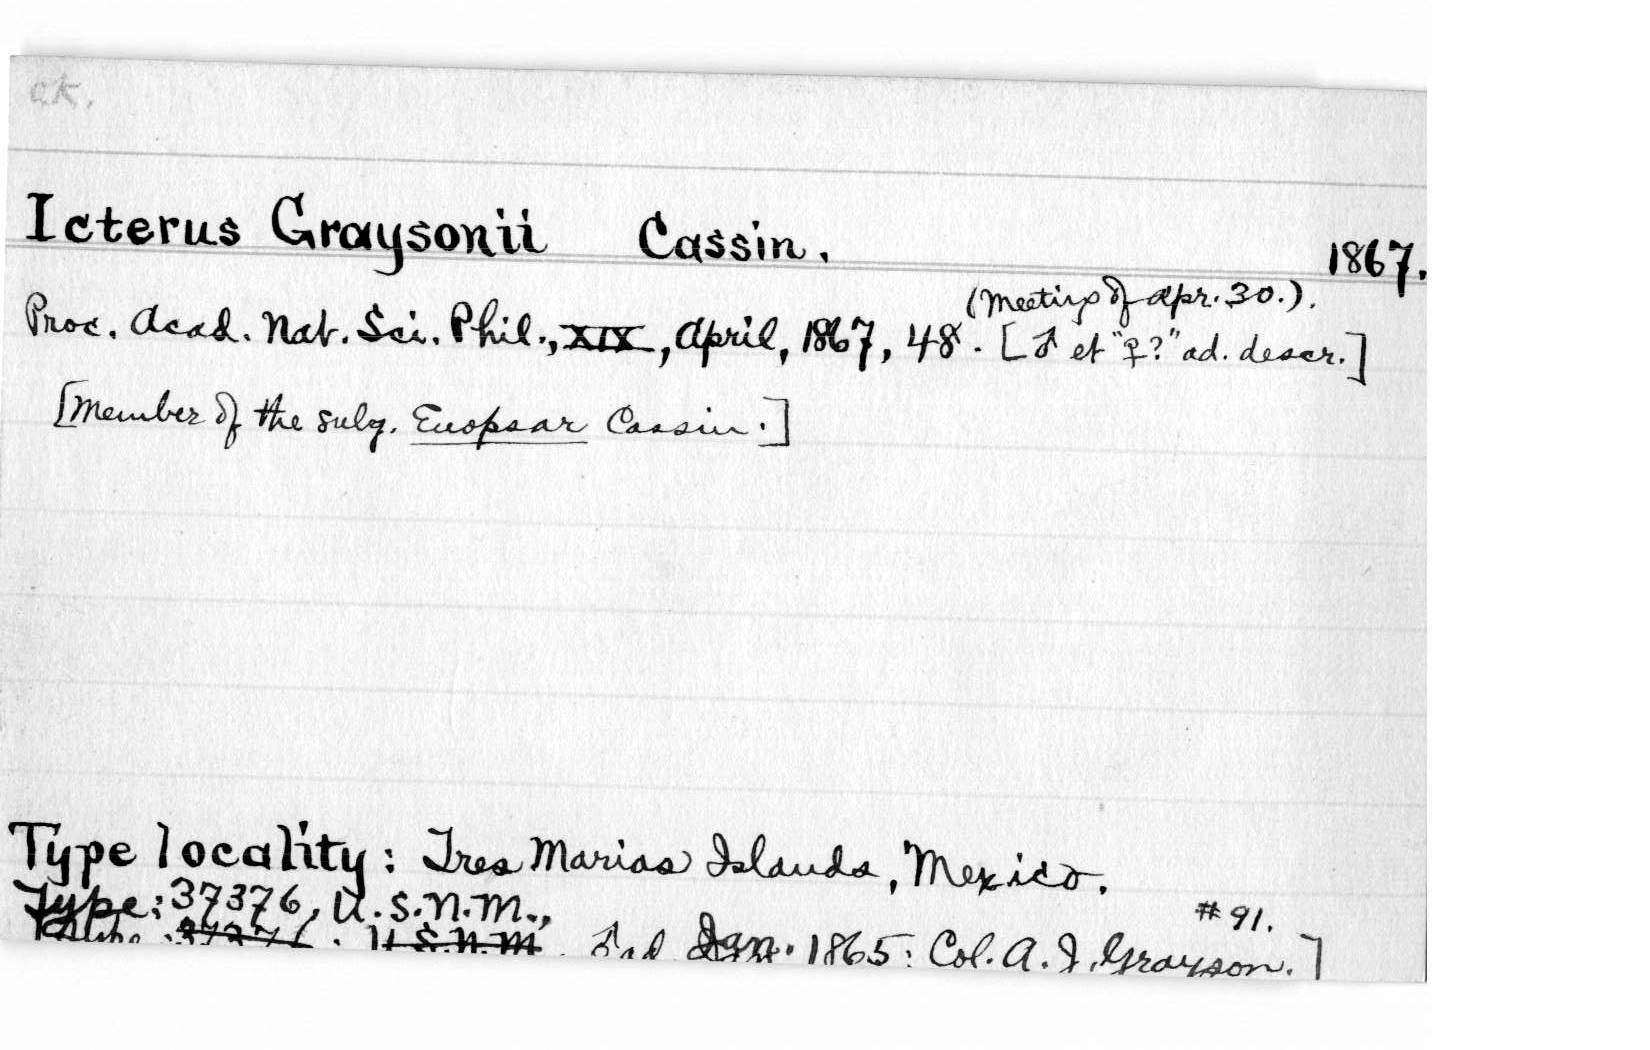 ck.
Icterus Graysonii Cassin. 1867.
(Meeting of Apr. 30.).
Proc. Acad. Nat. Sci. Phil., XIX, April, 1867, 48. [♂ et "♀?" ad. descr.]
[Member of the subg. Euopsar Cassin.]
Type locality: Tres Marias Islands, Mexico.
Type: 37376, U.S.N.M., #91.
37376, U.S.N.M. ♂ ad. Jan. 1865; Col. A. J. Grayson.]